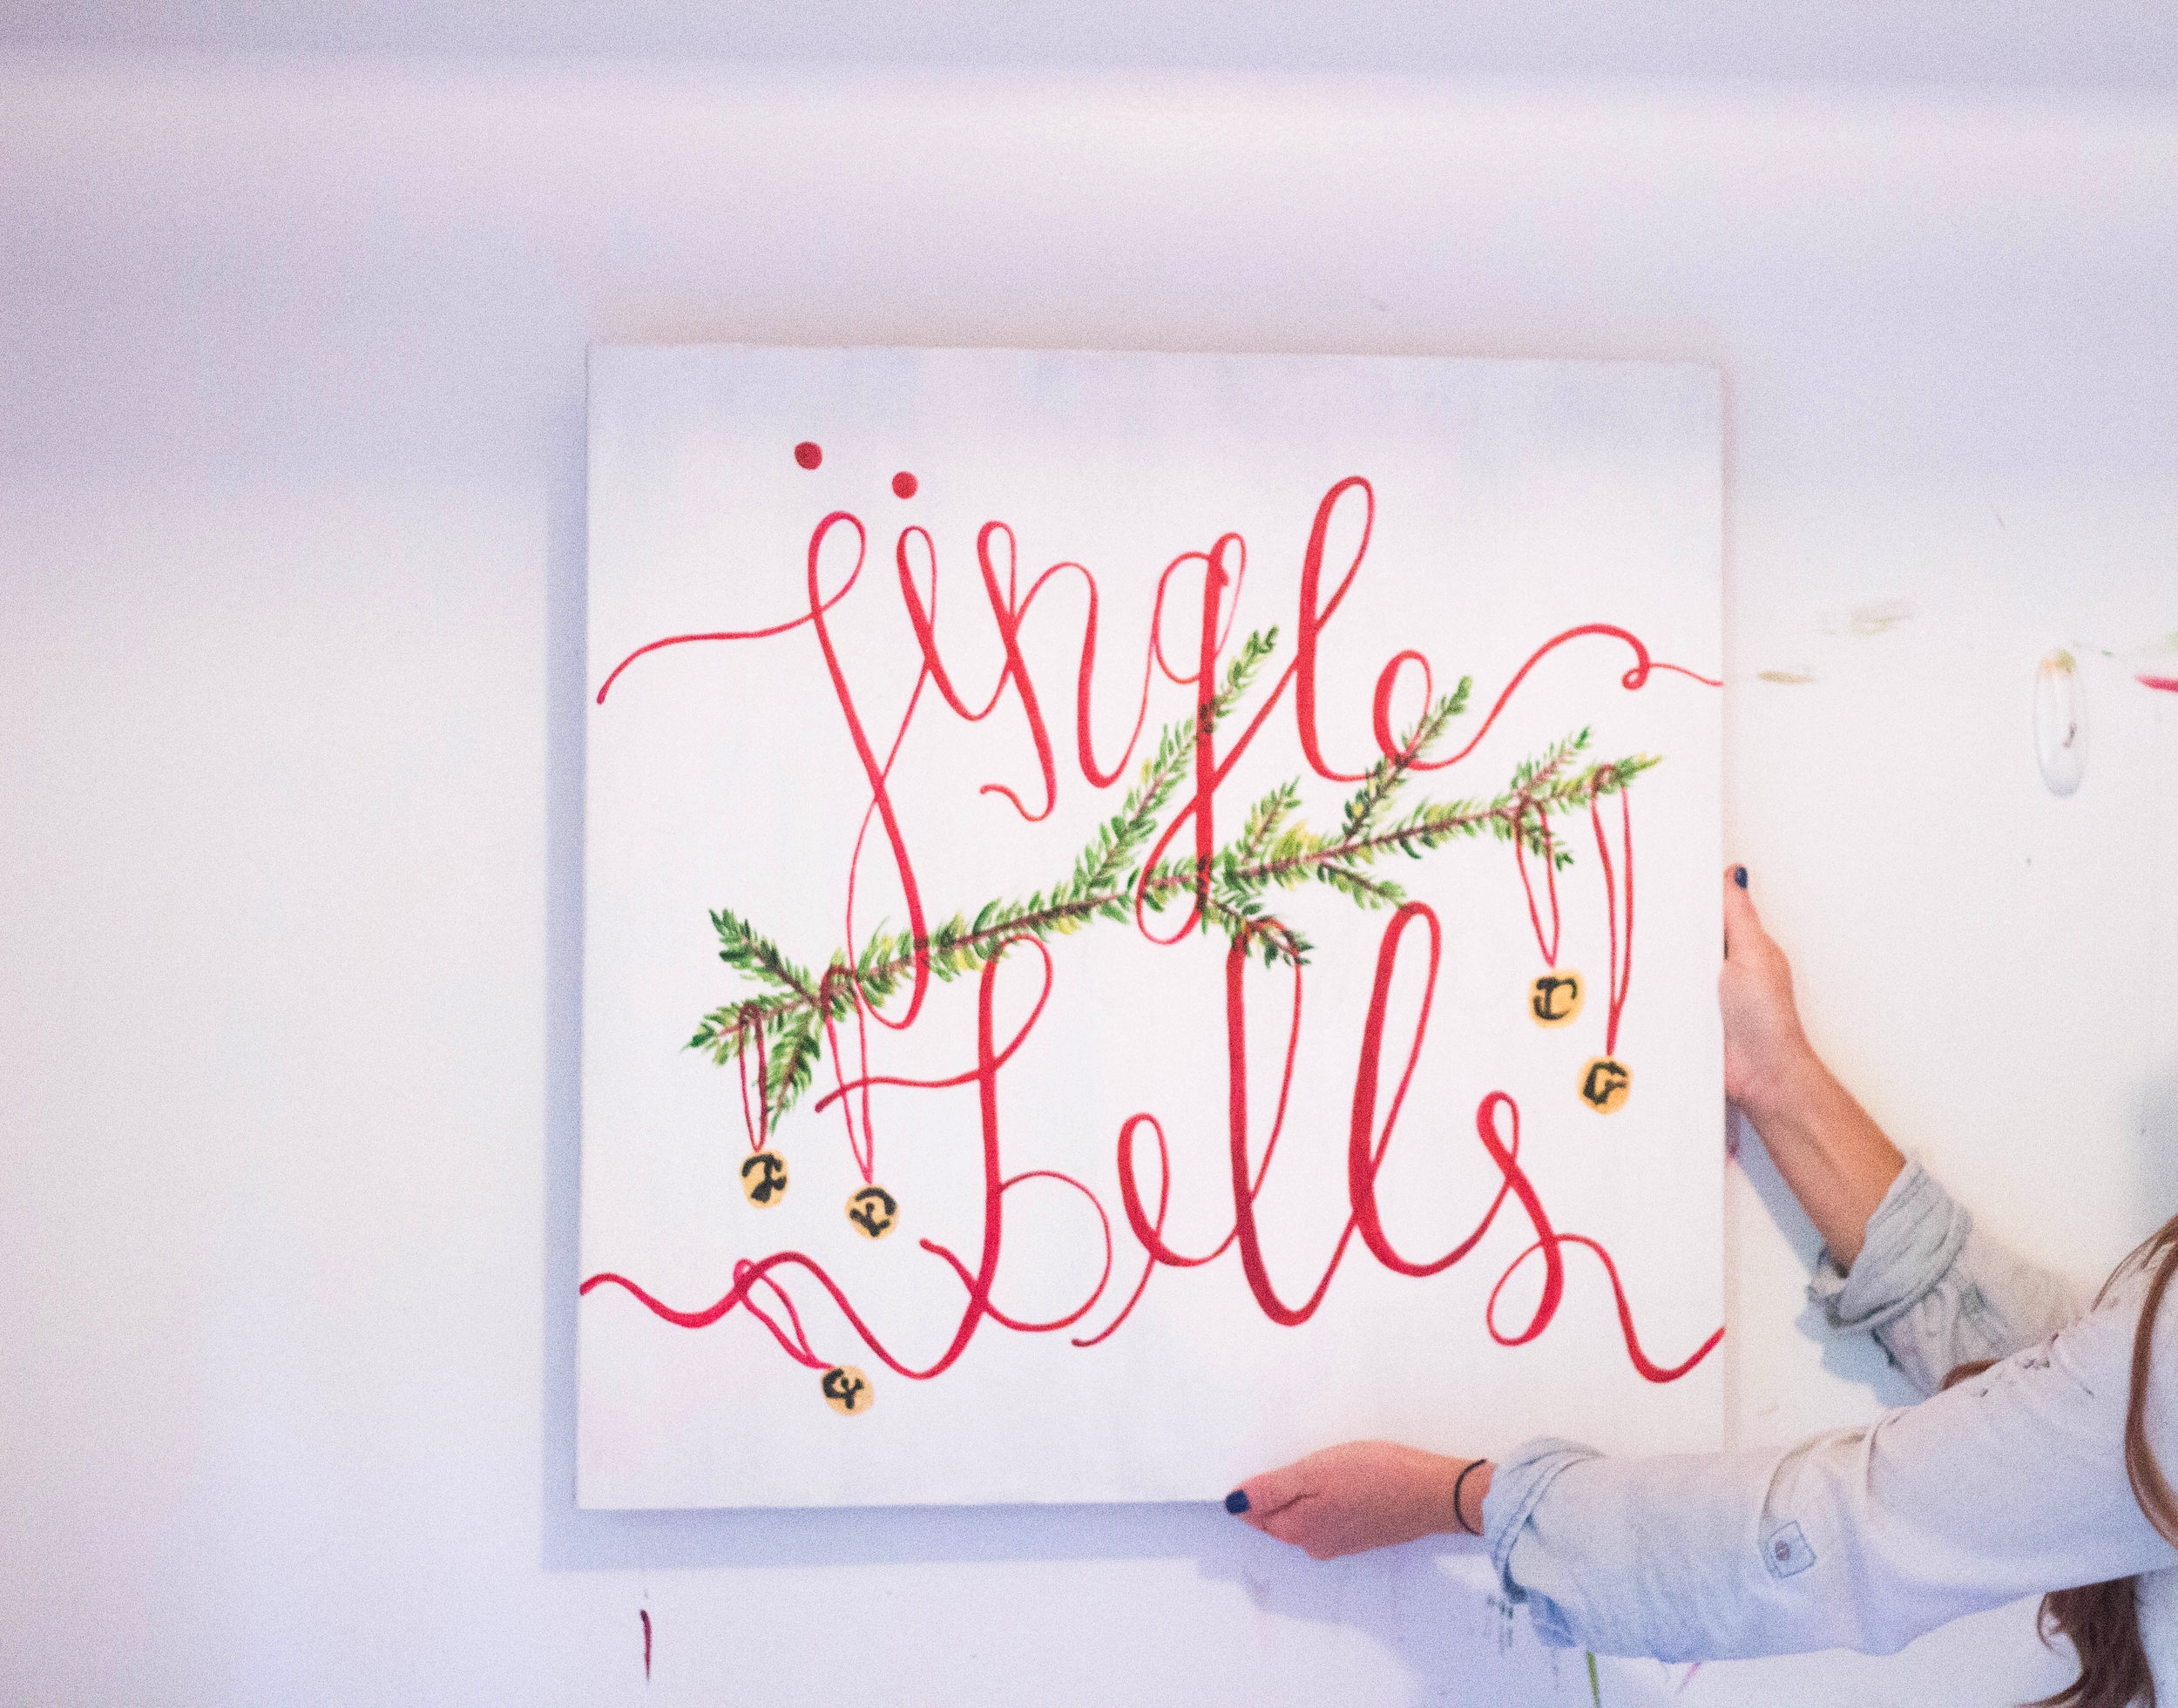 jingle
bells